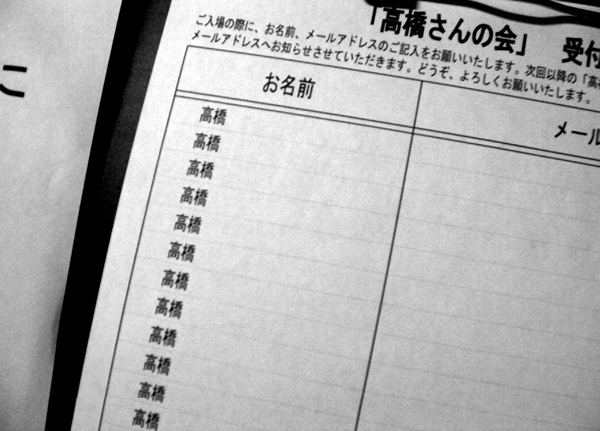 こ
「高橋さんの会」 受付
ご入場の際に、お名前、メールアドレスのご記入をお願いいたします。次回以降の「高
メールアドレスへお知らせさせていただきます。どうぞ、よろしくお願いいたします。
お名前 メール
高橋
高橋
高橋
高橋
高橋
高橋
高橋
高橋
高橋
高橋
高橋
高橋